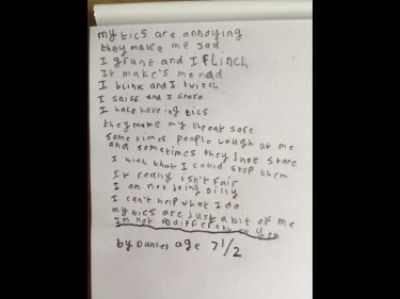 my tics are annoying
they make me sad
I grunt and I FLINCH
It make's me mad
I blink and I twitch
I sniff and I snore
I hate haveing tics
they make my throat sore
some times people laugh at me
and sometimes they just stare
I wish that I could stop them
It really isn't fair
I am not being silly
I can't help what I do
my tics are just a bit of me
I'm not so different to you
by Daniel age 7 1/2